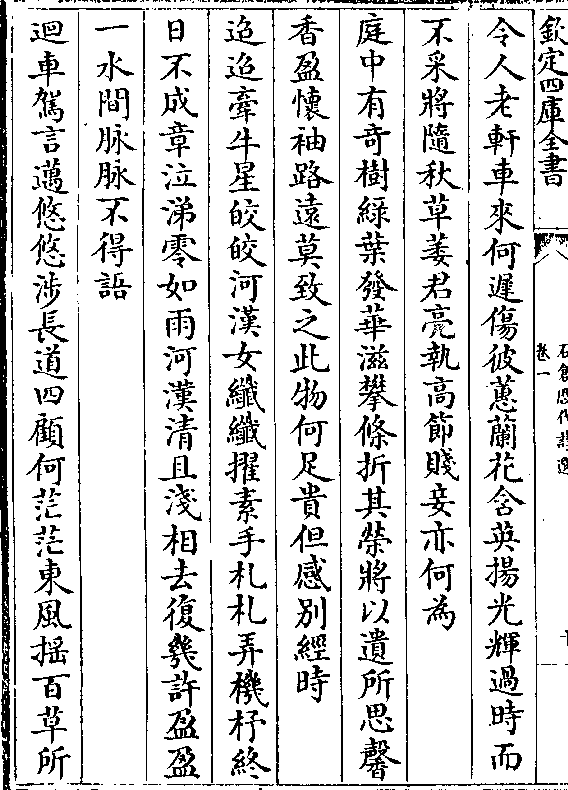 欽定四庫全書
石倉歷代詩選
卷一
令人老軒車來何遲傷彼蕙蘭花含英揚光輝過時而
不采將隨秋草萎君亮執高節賤妾亦何為
庭中有奇樹綠葉發華滋攀條折其榮將以遺所思馨
香盈懷袖路遠莫致之此物何足貴但感別經時
迢迢牽牛星皎皎河漢女纖纖擢素手札札弄機杼終
日不成章泣涕零如雨河漢清且淺相去復幾許盈盈
一水間脉脉不得語
迴車駕言邁悠悠涉長道四顧何茫茫東風揺百草所